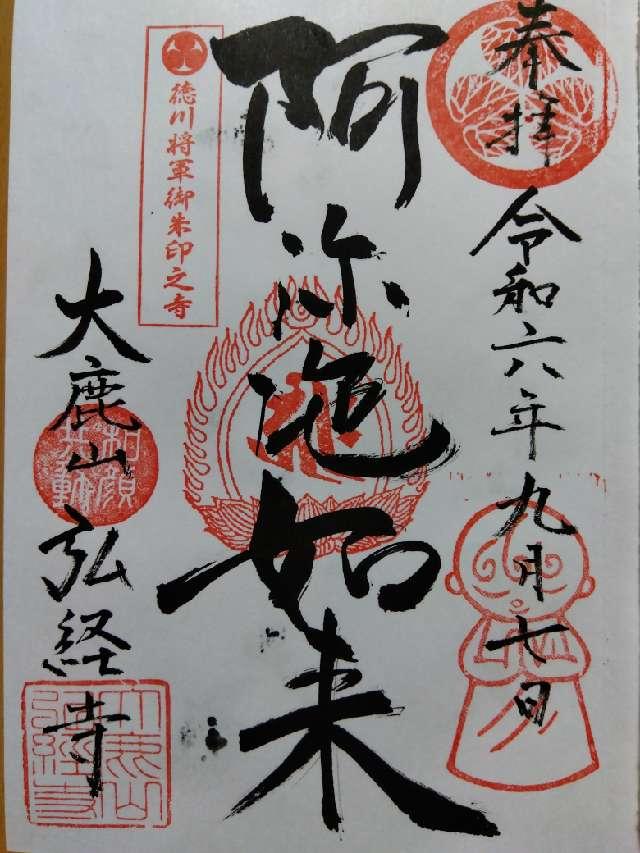 奉拝
令和六年九月七日
阿弥陀如来
徳川将軍御朱印之寺
大鹿山弘経寺
和顔
共動
大鹿山
弘経寺